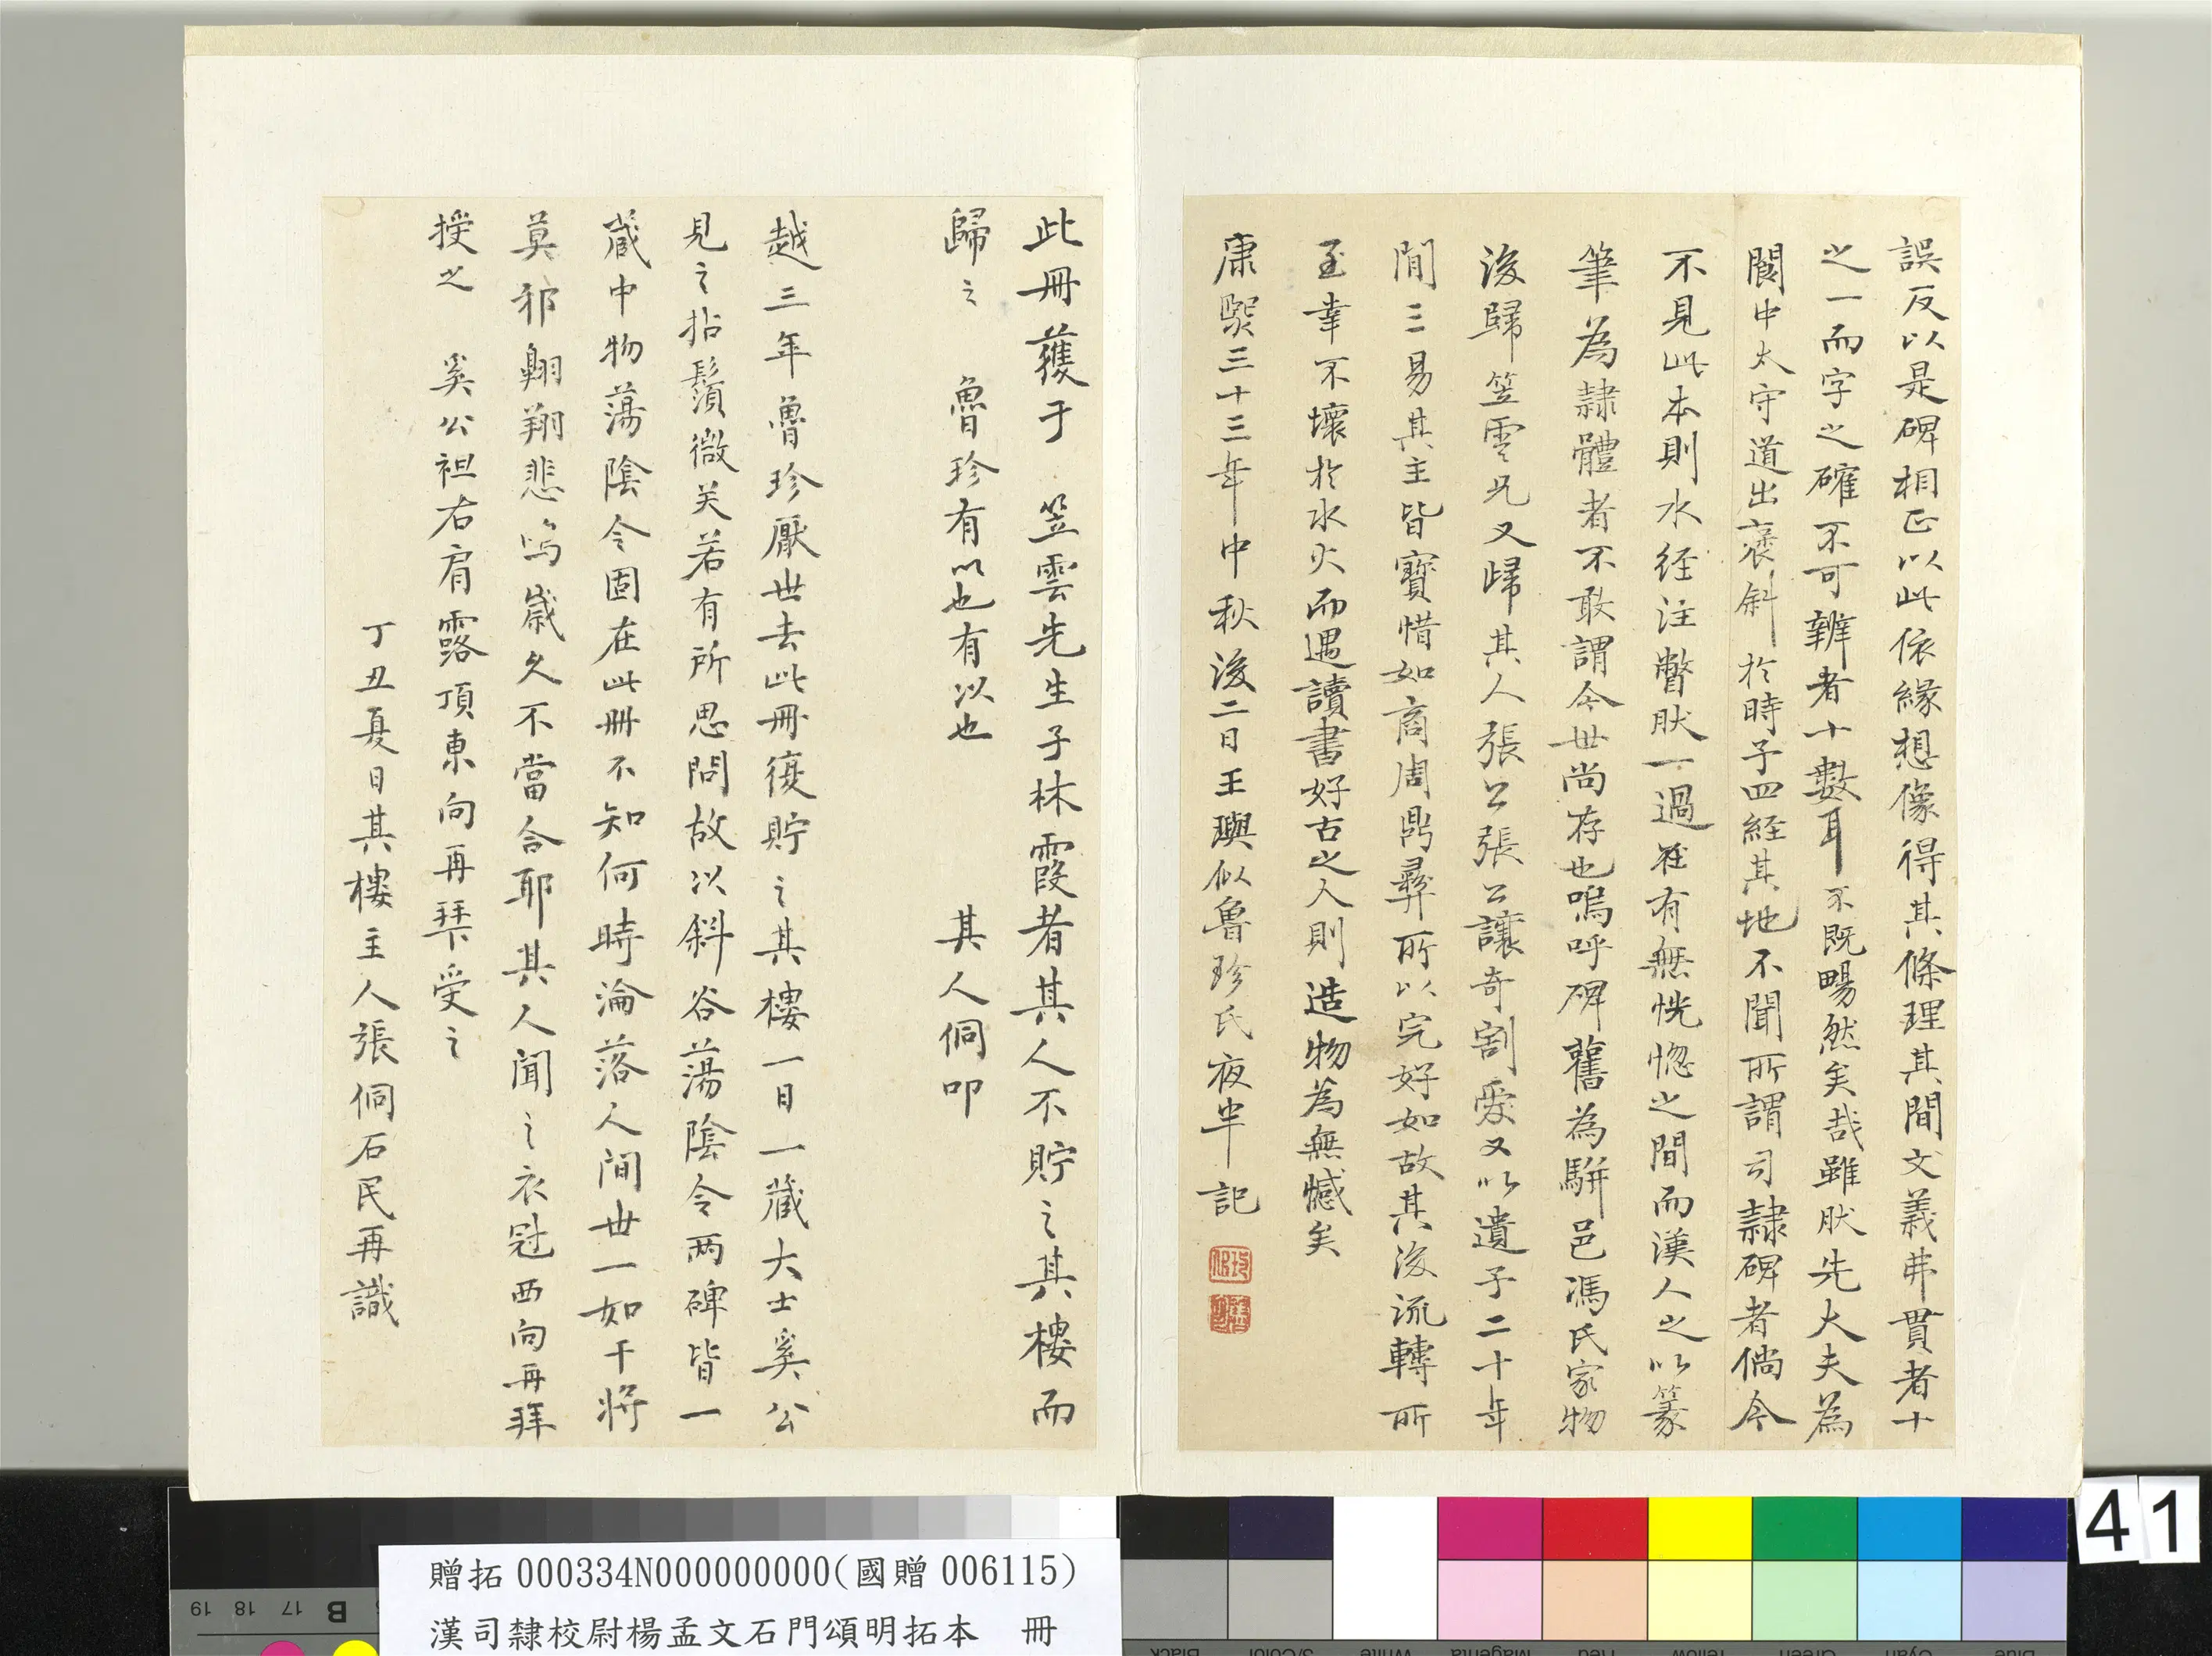 誤反以是碑相正以此依緣想像得其條理其間文義弗貫者十
之一而字之確不可辨者十數耳不既暢然矣哉雖肰先大夫為
閬中太守道出褒斜於時子四經其地不聞所謂司隸碑者倘今
不見此本則水経注瞥肰一過在有無恍惚之間而漢人之以篆
筆為隸體者不敢謂今世尚存也嗚呼碑舊為駢邑馮氏家物
後歸笠雲兄又歸其人張公張公讓奇割愛又以遺子二十年
間三易其主皆寶惜如商周鼎彞所以完好如故其後流轉所
至幸不壞於水火而遇讀書好古之人則造物為無憾矣
康熙三十三年中秋後二日王璵似魯珍氏夜半記
此冊獲于 笠雲先生子林霞者其人不貯之其樓而
歸之 魯珍有以也有以也 其人侗叩
越三年魯珍厭世去此冊復貯之其樓一日一藏大士奚公
見之拈鬚微笑若有所思問故以斜谷蕩陰令兩碑皆一
藏中物蕩陰令固在此冊不知何時淪落人間世一如干將
莫邪翱翔悲鳴歲久不當合耶其人聞之衣冠西向再拜
授之 奚公袒右肩露頂東向再拜受之
丁丑夏日其樓主人張侗石民再識
41
贈拓 000334N000000000(國贈 006115)
漢司隸校尉楊孟文石門頌明拓本 冊
19 18 17 B